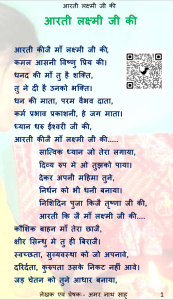 आरती लक्ष्मी जी की
आरती लक्ष्मी जी की
आरती कीजै माँ लक्ष्मी जी की,
कमल आसनी विष्णु प्रिय की।
धनद की माँ तु है शक्ति,
तु ने दी है उनको भक्ति।
धन की माता, परम वैभव दाता,
कर्म प्रभाव प्रकाशनी, हे जग माता।
ध्यान धरु ईश्वरी जी की,
आरती कीजै माँ लक्ष्मी जी की.....
सात्विक ध्यान जो तेरा लगाया,
दिव्य रुप में ओ तुझको पाया।
देकर अपनी महिमा तुने,
निर्धन को भी धनी बनाया।
निशिदिन पुजा किजै तृष्णा जी की,
आरती कि जै माँ लक्ष्मी जी की....
कौशिक बाहन माँ तेरा छाजै,
क्षीर सिन्धु मे तु ही बिराजै।
स्वच्छता, सुव्यवस्था को जो अपनावे,
दरिद्रता, कुरुपता उसके निकट नहीं आवे।
जड़ चेतन को तुने आधार बनाया,
लेखक एवं प्रेषक:- अमर नाथ साहु
1